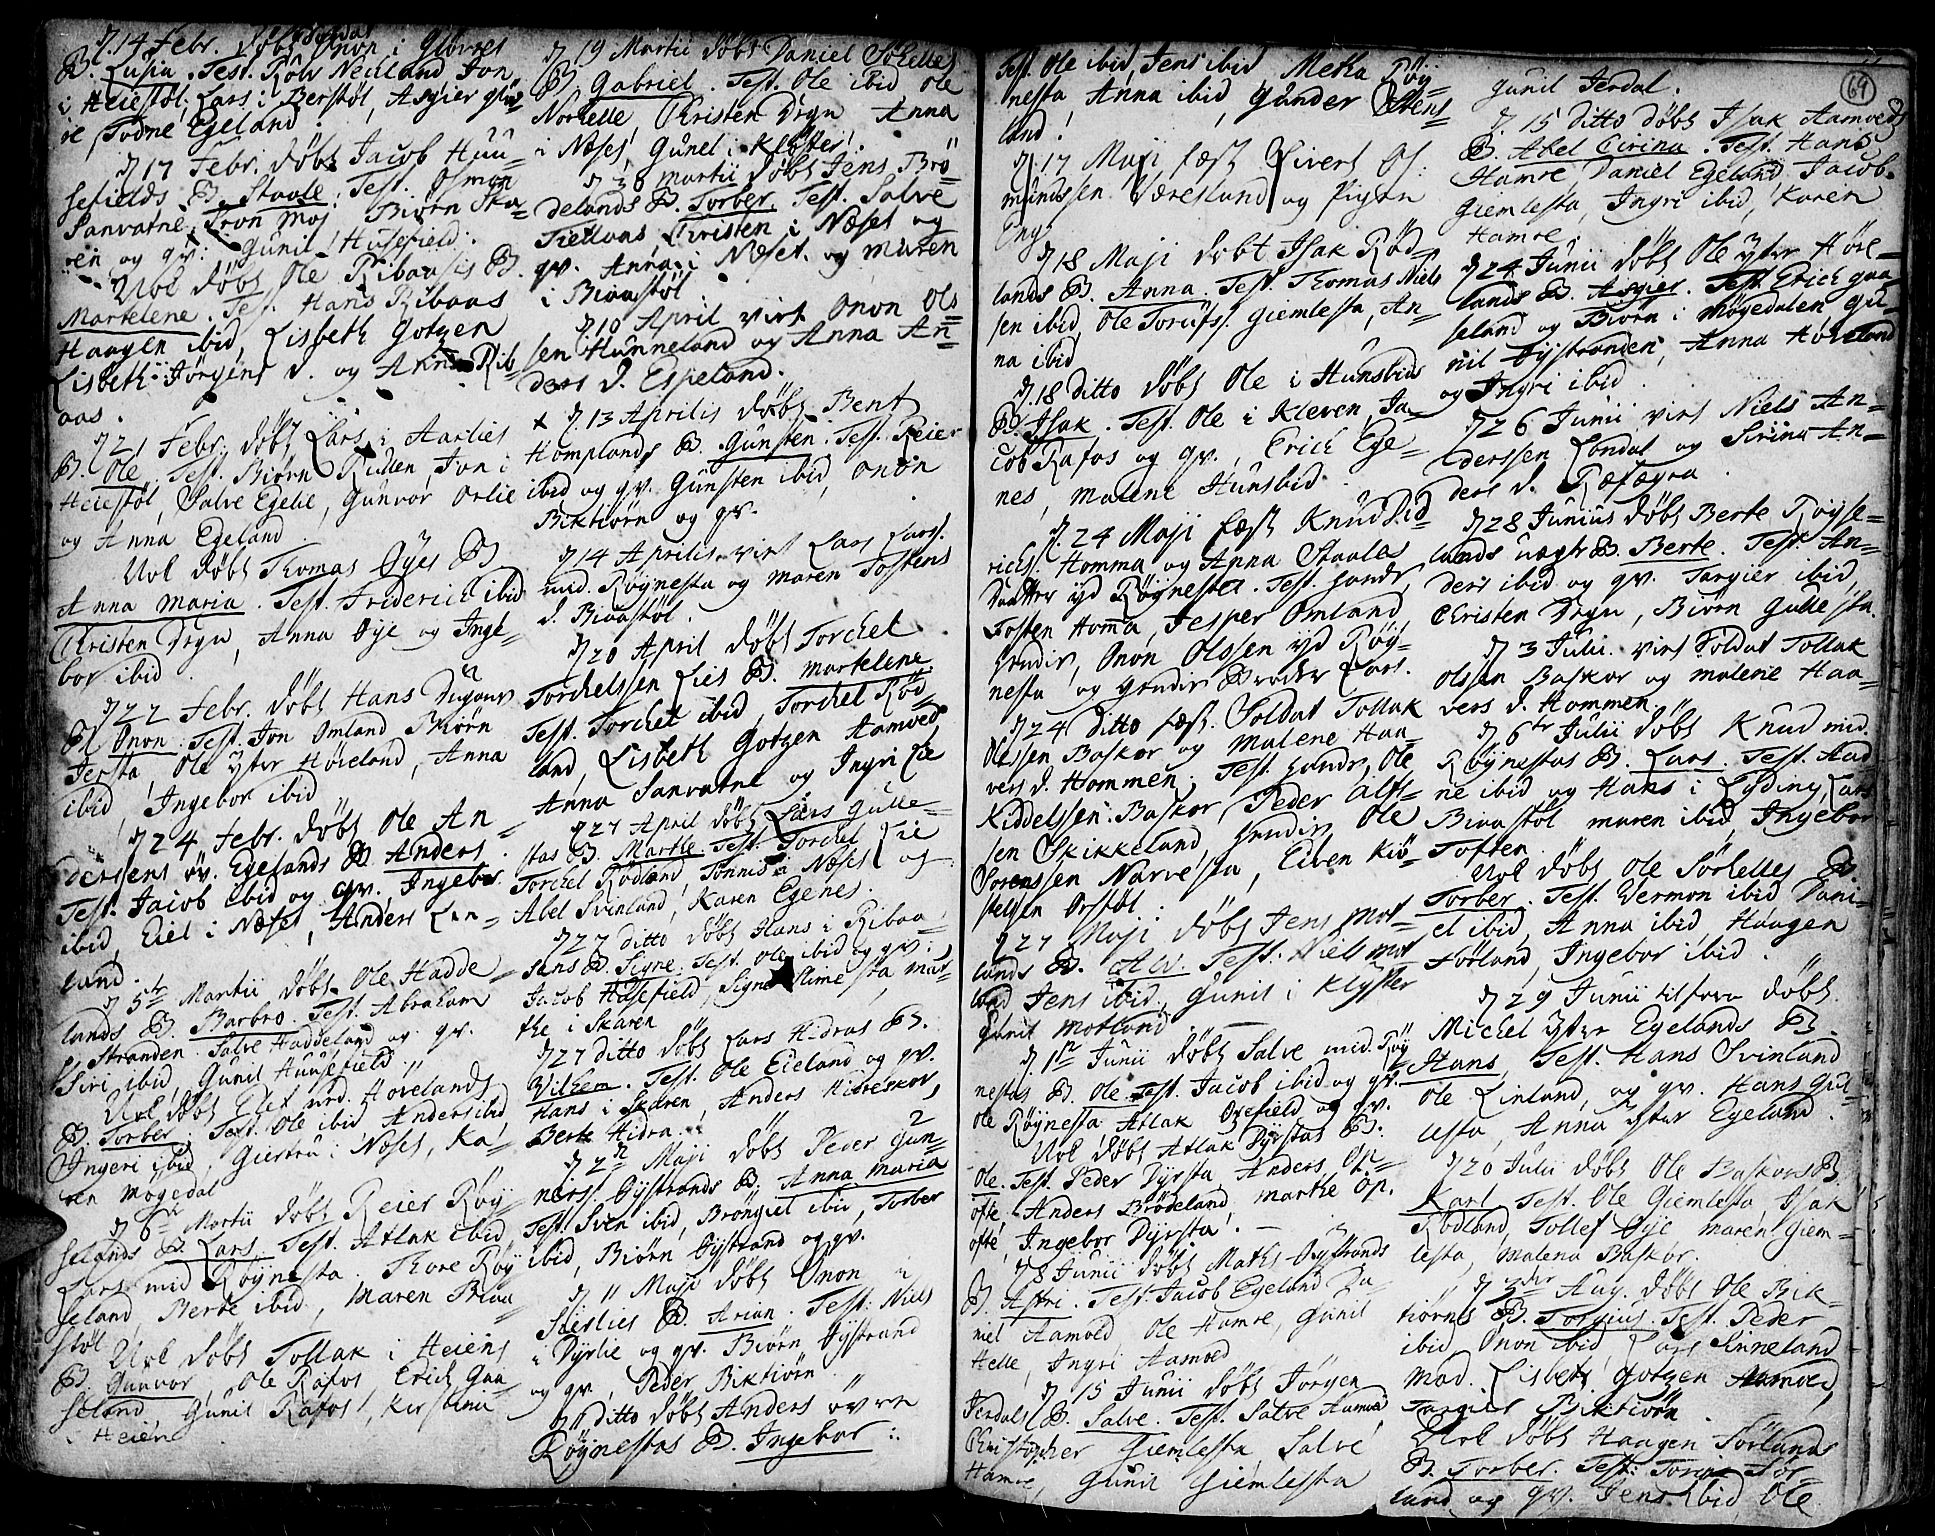 d. 14 Febr. döbt Onon i Glövres
B. Lusia. Test. Rolv Neuland Jon
i Heiestöl, Lars i Berstöl, Asgier
Todne Egeland.
d 17 Febr. döbt Jacob Huu-
sefields B. Staale. Test. Osmon
Sanvatne, Tron Moj Biörn Ska-
ren og qv: Gunil Husefield.
Uol döbt Ole Ribaasis B.
Martelene. Test. Hans Ribaas
Haagen ibid, Lisbeth Gotzen
Lisbeth Jörgens d. og Anna Rib-
aas.
d 21 Febr. döbt Lars i Aarlies
B. Ole. Test. Biörn Jon i
Heiestöl, Salve Egelie, Gunvor Orlie
og Anna Egeland.
Uol döbt Thomas Öyes B
Anna Maria. Test. Friderich ibid
Christen Drgn, Anna Öye og Inge-
bor ibid.
d 22 Febr. döbt Hans
B Onon. Test. Jon Omland Biörn
Jersta, Ole yster Höveland, Anna
ibid, Ingebor ibid
d 24 Febr. döbt Ole An-
dersens öv. Egelands B Anders.
Test. Jacob ibid og qv. Ingebor
ibid, Eiel i Næset, Anders Lin-
land.
d 5te Martii döbt Ole Hadde
lands B. Barbro. Test. Abraham
p. Stranden. Salve Haddeland og qv.
Siri ibid, Gunil Huusefield
Uol döbt Elef nrd. Hövelands
B. Torber. Test. Ole ibid Anders ibid
Ingeri ibid, Giertru i Næset, Ka-
ren Mögedal
d 6te Martii döbt Reier Röy-
selands B. Lars. Test. Atlak ibid,
Lars mid Röynesta. Thore Röy
seland, Berte ibid, Maren Biaa
stöl
Uol döbt Tollak i Heiens
B Gunvor, Ole Rafos Erich Gaa
seland, Gunil Rafos, Kirstine
i Heien
d 19 Martii döbt Daniel Sörelles
B. Gabriel. Test. Ole ibid Ole
Norhelle Christen Drgn Anna
i Næset, Gunel i Klöster.
d 30 Martii döbt Jens Brö-
delands B. Torber. Test. Salve
Fiellaas, Christen i Næset og
qv. Anna i Næset. og Maren
i Biaastöl
d 10 April virt Onon Ols
sen Hunneland og Anna An-
ders d. Espeland.
x d. 13 Aprilis döbt Bent
Homplands B. Gunsten. Test. Reier
ibid og qv. Gunsten ibid, Onon
Biktiörn og qv.
d 14 Aprilis virt Lars Lars.
mid. Röynesta og Maren Tostens
d. Biaastöl.
d 20 April döbt Torchel
Torchelssen Lies B. Martelene
Test. Torchel ibid, Torchel Röd-
land, Lisbeth Gotzen Aamoed
Anna Sanvatne og Ingri Lie
d 27 April döbt Lars Gulle-
stas B. Marthe Test. Torchel Lie
Torchel Rödland, Tönnis i Næset og
Abel Svinland, Karen Egenes.
d 27 ditto döbt Hans i Ribaa
sens B. Signe. Test. Ole ibid og qv:
Jacob Husefield, Signe Slimesta, Mar-
the i Skaren
d 27 ditto döbt Lars Hidras B.
Vilhem. Test. Ole Eieland og qv.
Hans i Skaren, Anders Hidreskor,
Berte Hidra.
d 2n Maji döbt Peder Gun-
ners. Öystrands B. Anna Maria
Test. Sven ibid, Bröngiel ibid, Torber
ibid, Biörn Öystrand og qv.
d 11 Maji döbt Onon
Skierlies B. Arian. Test. Niels
i Dyrlie og qv. Biörn Öystrand
og qv, Peder Biktiörn
d 11 ditto döbt Anders övre
Röynestas B. Ingebor:
Test. Ole ibid, Jens ibid, Metha Röy-
nesta Anna ibid, Gunder Stens-
land.
d 17 Maji fæst Sivert Os-
mundssen Væresland og Pigen
Eng.
d 18 Maji döbt Isak Röd-
lands B. Anna. Test. Thomas Niels
sen ibid, Ole Torüfs. Giemlesta, An-
na ibid
d. 18 ditto döbt Ole i Hunsbids
B. Isak. Test. Ole i Kleven, Ja-
cob Rafos og qv., Erich Ege-
nes, Malene Hunsbid.
d. 24 Maji fæst Knud Did-
richs. Homma og Anna Staales
Daatter yd Röynesta. Test. hands
Tosten Homma, Jesper Omland,
hendis, Onon Olssen yd Röy-
nesta og hendis Broder Lars.
d 24 ditto fæst. Soldat Tollak
Olssen Baskor og Malene Haa-
vers d. Hommen. Test. hands, Ole
Kiddelssen Baskor, Peder Alf-
sen Skikkeland, hendis Ole
Sorenssen Narvesta, Even Kiö-
stelsen Orstöl.
d 27 Maji döbt Jens Mot-
lands B. Alv Test. Niels Mot
land Jens ibid, Gunil i Klyster
Gunil Motland
d 1ste Junii döbt Salve mid. Röy
nestas B. Ole. Test. Jacob ibid og qv.
Ole Röynesta Atlak Qvefield og qv.
Uol döbt Atlak Dyrstas B:
Ole. Test. Peder Dyrsta, Anders Op-
ofte, Anders Brödeland, Marthe Op-
ofte, Ingebor Dyrsta.
d 8 Junii döbt Maths Öystrands
B. Astri. Test. Jacob Egeland Da-
niel Aamoed Ole Hamre, Gunil
Helle, Ingri Aamoed
d 15 Junii döbt Jörgen
Jerdals B. Salve. Test. Salve Aamoed
Christopher Giemlesta, Salve
Hamre, Gunil Giemlesta
Gunil Jerdal.
69
d. 15 ditto döbt Isak Aamoeds
B. Abel Cirina. Test. Hans
Hamre Daniel Egeland Jacob
Giemlesta, Ingri ibid, Karen
Hamre.
d 24 Junii döbt Ole yster Höve-
lands B. Asgier. Test. Erich Gaa
seland og Biörn i Mögedalen Gu-
nil Öystranden, Anna Höveland
og Ingri ibid.
d 26 Junii virt Niels An-
derssen Londal og Sirina An-
ders d. Ræfægra
d 28 Junius döbt Berte Röyse-
lands uægte B. Berte. Test. An-
ders ibid og qv. Targier ibid,
Christen Drgn, Biörn Gullesta.
d 3 Julii. virt Soldat Tollak
Olssen Baskor og Malene Haa-
vers d. Hommen
d 6te Julii döbt Knud mid.
Röynestas B. Lars. Test. Aad
ne ibid og Hans i Lyding, Lars
Biaastöl Maren ibid, Ingebor
Toften
Uol döbt Ole Sörhelles B.
Torber. Test. Vermon ibid Dani-
el ibid, Anna ibid, Haagen
Förland, Ingebor ibid.
d 29 Junii tilforn döbt
Michel yster Egelands B.
Hans. Test. Hans Svinland
Ole Linland, og qv. Hans Gul-
lesta, Anna yster Egeland.
d 20 Julii döbt Ole Baskors B.
Karl Test. Ole Giemlesta, Isak
Rödland, Tollef Öye Maren Giem-
lesta, Malena Baskor.
d 3der Aug. döbt Ole Bik-
tiörns B. Torgius. Test. Peder
ibid Onon ibid Lars Sinneland
Mad. Lisbeth Gotzen Aamoed
Targier Biktiörn
Uol döbt Haagen Förlands
B. Torber. Test. Toras För-
land og qv. Jens ibid, Ole